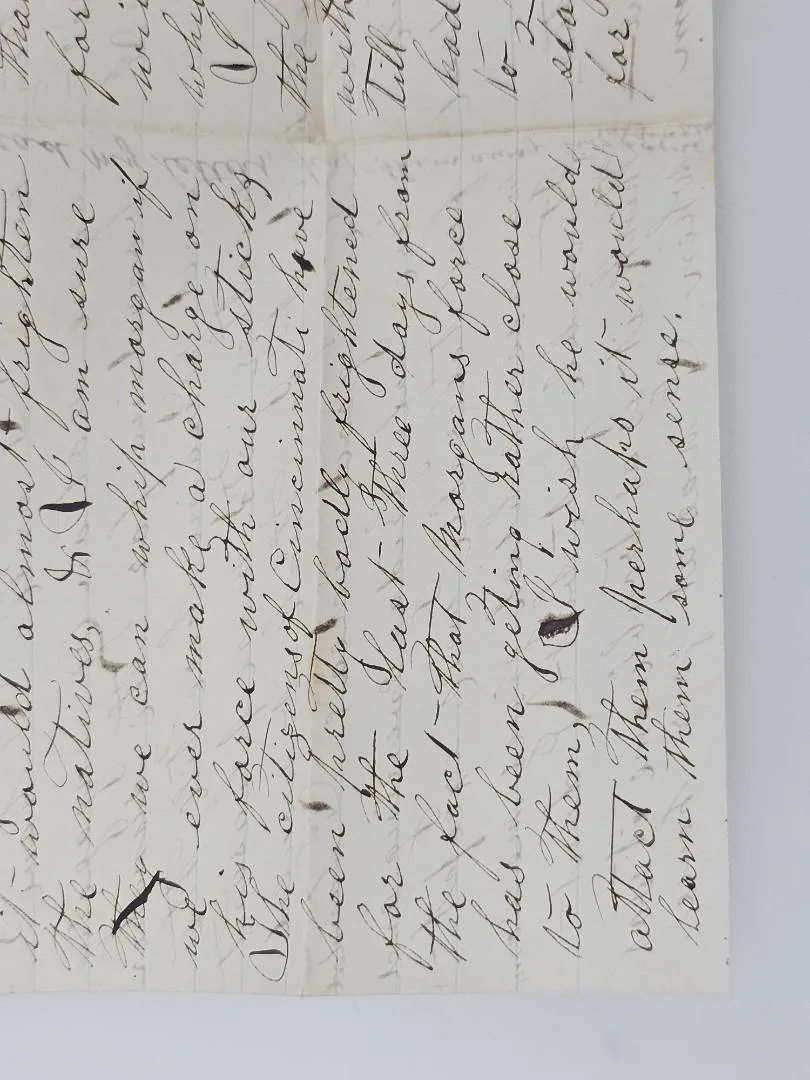 it would almost frighten
the natives, & I am sure
we can whip morgan if
we ever make a charge on
his force with our sticks
The citizens of Cincinnati have
been pretty badly frightened
for the last three days from
the fact that Morgans force
has been geting rather close
to them, I wish he would
attact them perhaps it would
learn them some sense.
for
I
the
with
till
had
to
for